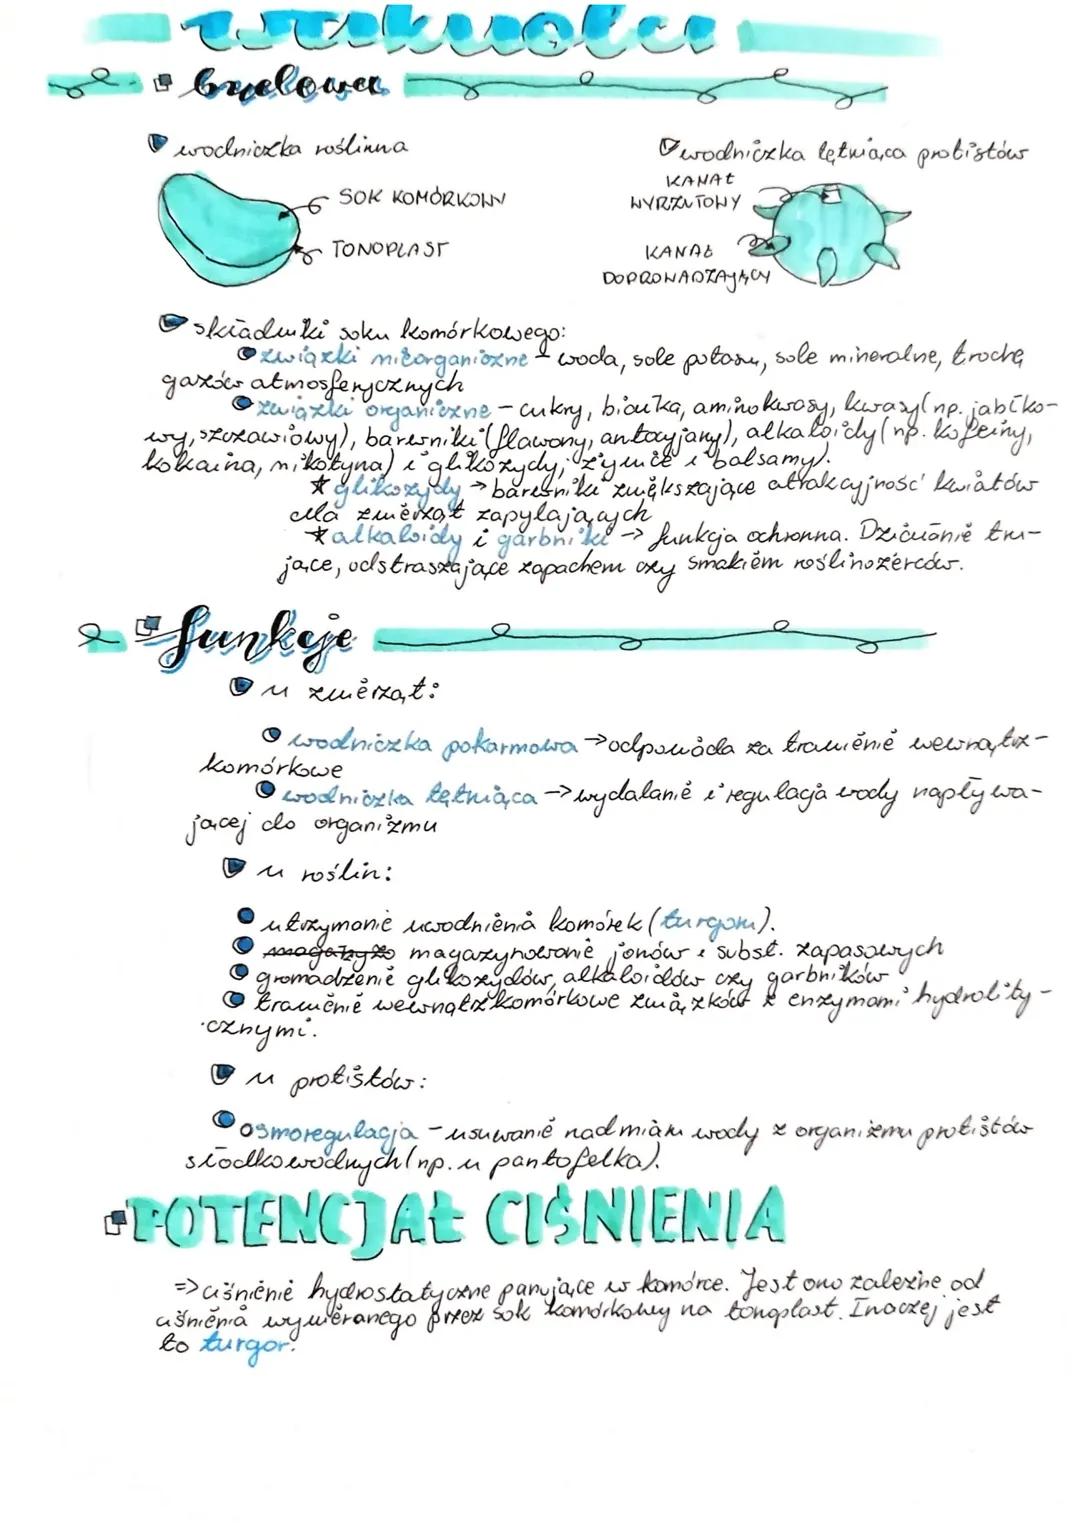 wakuola
budowa
wodniczka roślinna
wodniczka tętniąca protistów
SOK KOMÓRKOWY
TONOPLAST
KANAŁ
WYRZUTOWY
KANAŁ
DOPROWADZAJĄCY
składniki soku komórkowego:
związki nieorganiczne - woda, sole potasu, sole mineralne, trochę
gazów atmosferycznych
związki organiczne - cukry, białka, aminokwasy, kwasy (np. jabłko-
wy, szczawiowy), barwniki (flawony, antocyjany), alkaloidy (np. kofeiny,
kokaina, nikotyna) i glikozydy, żywice i balsamy).
* glikozydy → barwniki zwiększające atrakcyjność kwiatów
dla zwierząt zapylających
* alkaloidy i garbniki → funkcja ochronna. Działanie tru-
jące, odstraszające zapachem czy smakiem roślinożerców.
funkcje
u zwierząt:
wodniczka pokarmowa → odpowiada za trawienie wewnątrz-
komórkowe
wodniczka tętniąca → wydalanie i regulacja wody napływa-
jącej do organizmu
u roślin:
utrzymanie uwodnienia komórek (turgoru).
magazynowanie jonów i subst. zapasowych
gromadzenie glikozydów, alkaloidów czy garbników
trawienie wewnątrzkomórkowe związków z enzymami hydrolity-
cznymi.
u protistów:
osmoregulacja - usuwanie nadmiaru wody z organizmu protistów
słodkowodnych (np. u pantofelka).
POTENCJAŁ CIŚNIENIA
=> ciśnienie hydrostatyczne panujące w komórce. Jest ono zależne od
ciśnienia wywieranego przez sok komórkowy na tonoplast. Inaczej jest
to turgor.